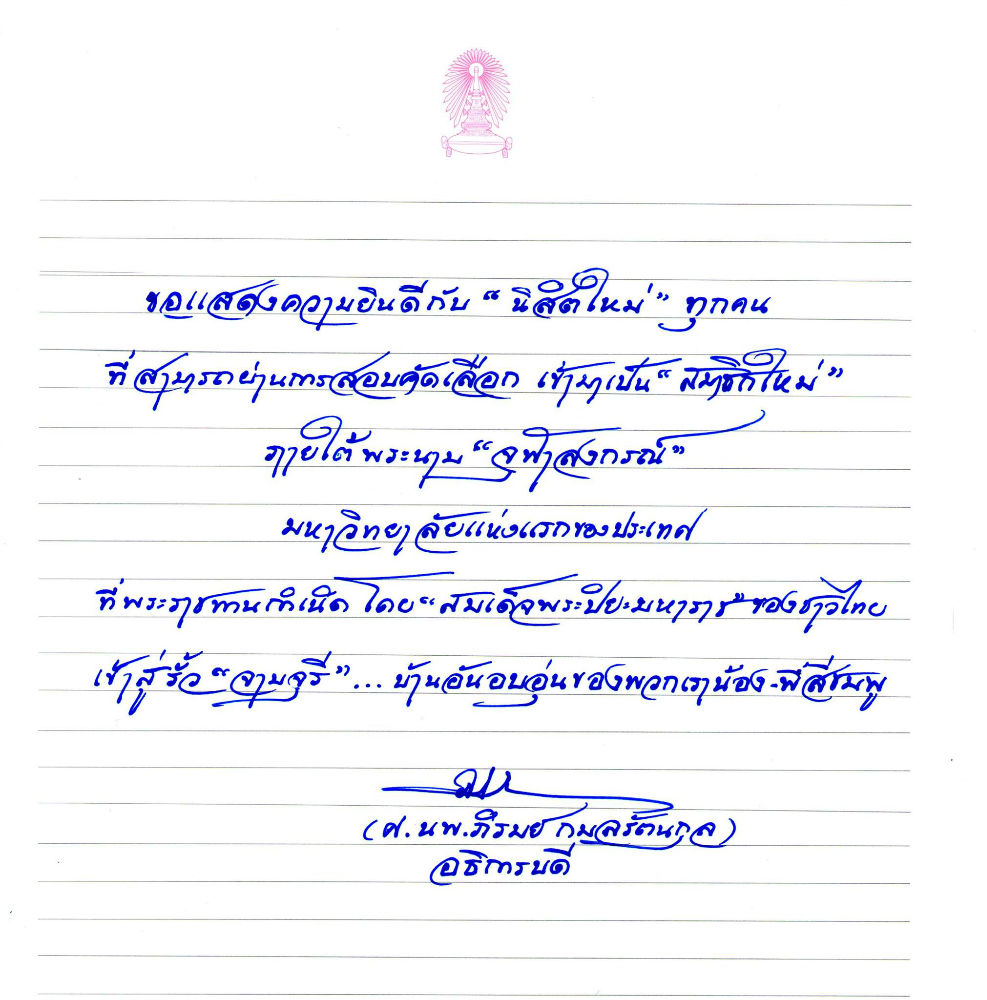 ขอแสดงความยินดีกับ “นิสิตใหม่” ทุกคน
ที่สามารถผ่านการสอบคัดเลือก เข้ามาเป็น “สมาชิกใหม่”
ภายใต้พระนาม “จุฬาลงกรณ์”
มหาวิทยาลัยแห่งแรกของประเทศ
ที่พระราชทานกำเนิด โดย “สมเด็จพระปิยะมหาราช” ของชาวไทย
เข้าสู่รั้ว “จามจุรี” ... บ้านอันอบอุ่นของพวกเราน้อง-พี่สีชมพู
(ศ.นพ.ภิรมย์ กมลรัตนกุล)
อธิการบดี